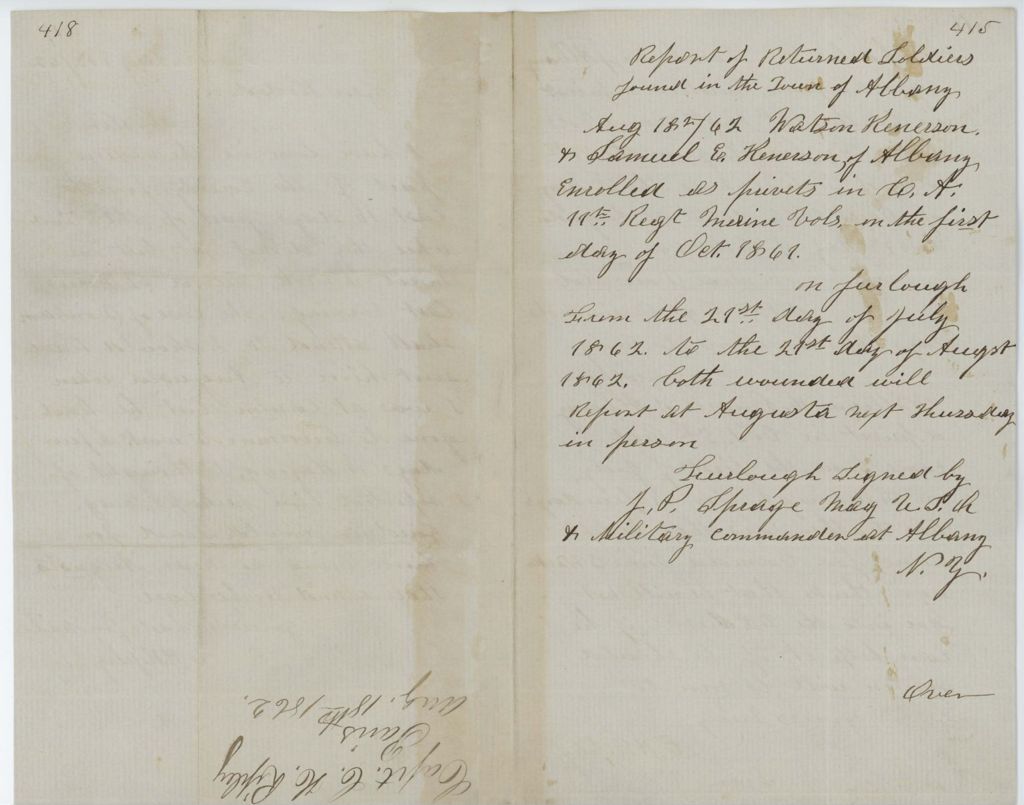 418
415
Report of Returned Soldiers
found in the Town of Albany
Aug 18th/62 Watson Kenerson.
& Samuel E. Kenerson, of Albany
Enrolled as privets in C. A.
11th Regt Maine Vols, on the first
day of Oct. 1861.
on furlough
From the 21st day of july
1862. to the 21st day of Augst
1862. both wounded will
Report at Augusta next Thursday
in person
Furlough Signed by
J. P. Sprage Mag U. S. A
& Military Commander at Albany
N. Y.
Over
Capt. C. H. Ripley
Paris
Aug. 18th 1862.